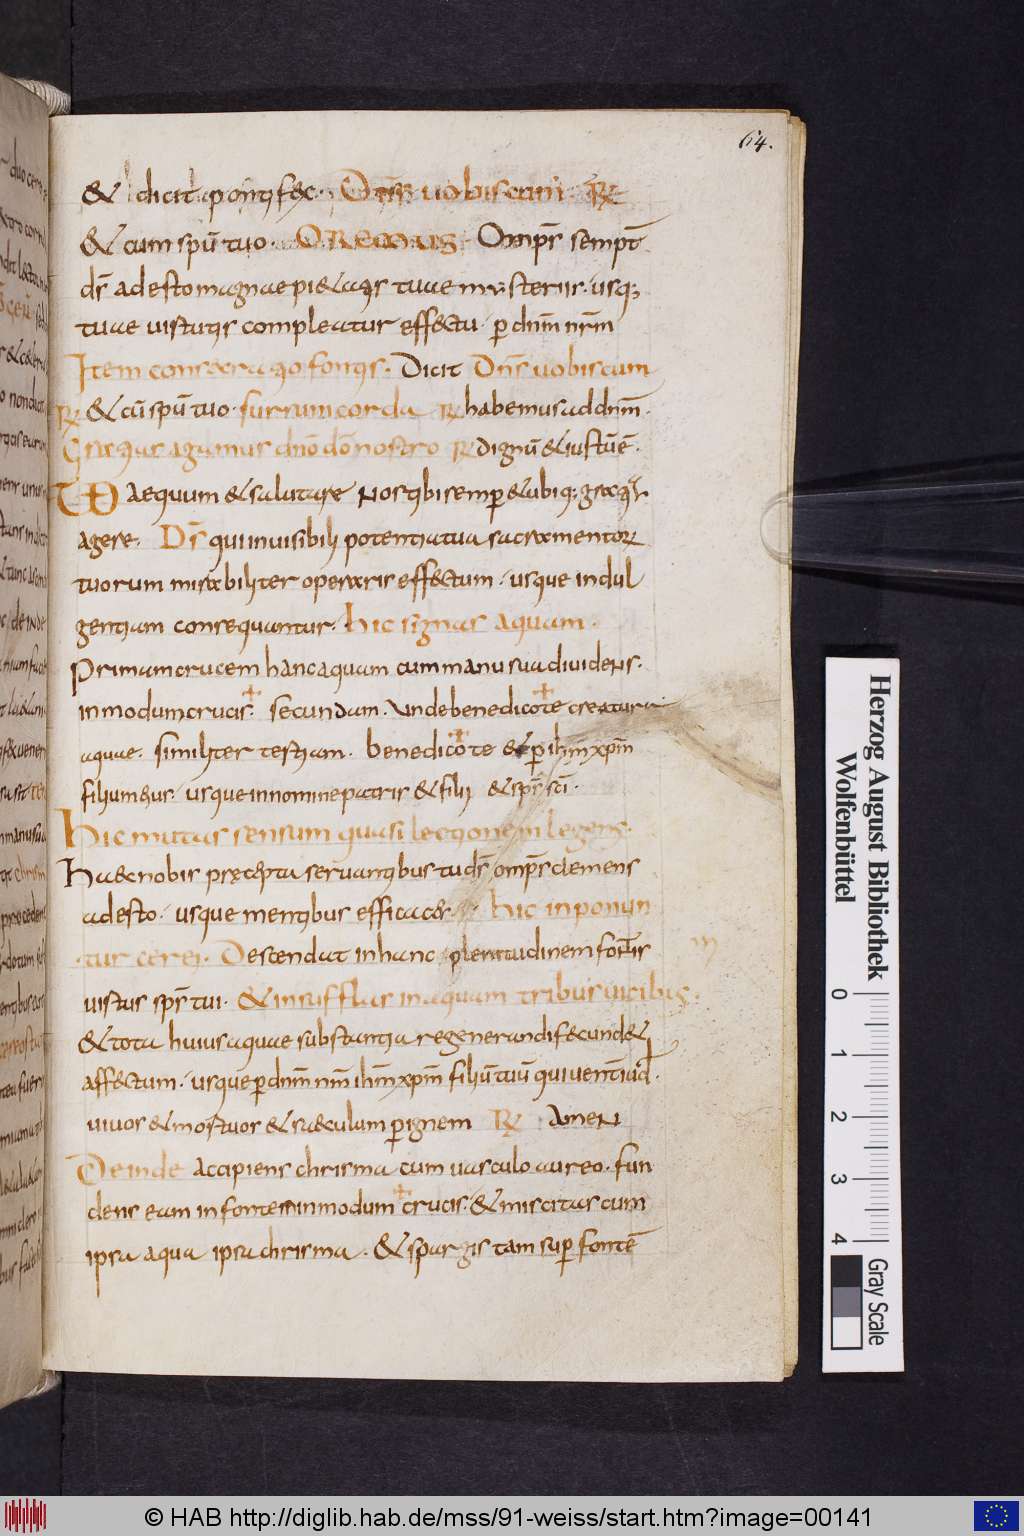 64.
& dicit pontifex. Dn̄s uobiscum. R̷
& cum spū tuo. OREMUS. Omp̄s sempt̄
ds̄ adesto magnae pi&atis tuae mysteriis. usq;
tuae uirtutis compleatur eff&tu. p̱ dnm̄ nrm̄
Item consecratio fontis. Dicit Dn̄s uobiscum
R̷ & cū spū tuo. sursum corda R̷ habemus ad dnm̄.
Gratias agamus dnō dō nostro R̷ dignū & iustū ē.
UD aequum & salutare Nos tibi semp̱ & ubiq; gratias
agere. Ds̄ qui inuisibili potentia tua sacramentorꝝ
tuorum mirabiliter operaris eff&tum. usque indul
gentiam consequantur. hic signas aquam.
Primam crucem hanc aquam cum manu sua diuidens.
in modum crucis. secundam. Unde benedico te creatura
aquae. similiter tertiam. benedico te & p̱ ihm̄ xpm̄
filium eius. usque in nomine patris & filii & sps̄ sc̄i.
Hic mutas sensum quasi lectionem legens.
Haec nobis pręcepta seruantibus tu ds̄ omp̄s clemens
adesto. usque mentibus efficacer. Hic in ponun
tur cerei. Descendat in hanc plenitudinem fontis
uirtus sps̄ tui. & insufflas in aquam tribus uicibus.
& tota huius aquae substantia regenerandi fecund&
aff&tum. usque p̱ dnm̄ nm̄ ihm̄ xpm̄ filiū tuū qui uentūꝰ ē
uiuos & mortuos & saeculum p̱ ignem R̷ AmeN
Deinde accipiens chrisma cum uasculo aureo. fun
dens eam in fontem in modum crucis. & miscitas cum
ipsa aqua ipsa chrisma. & spargis tam sup̱ fontē
Herzog August Bibliothek
Wolfenbüttel
0 1 2 3 4
Gray Scale
© HAB http://diglib.hab.de/mss/91-weiss/start.htm?image=00141